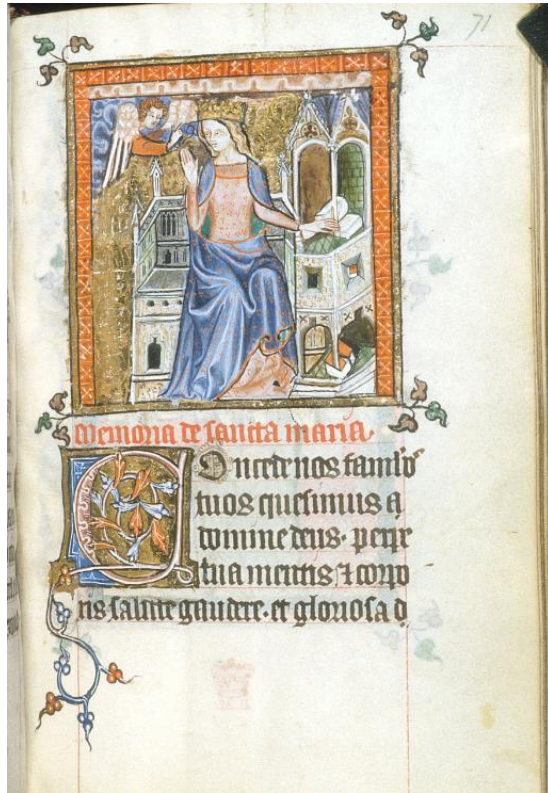 71
Memoria de sancta maria.
Concede nos famlos
tuos quesumus d
domine deus. perpe
tua mentis ⁊ corpo
ris salute gaudere. et gloriosa d